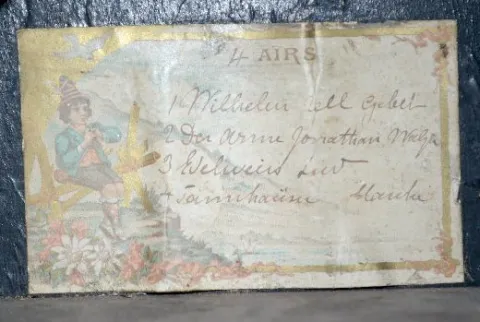 4 AIRS
1 Wilhelm tell Gebet
2 Der arme Jonathan Walzer
3 Edelweiss Lied
4 Tannhäuser Marche